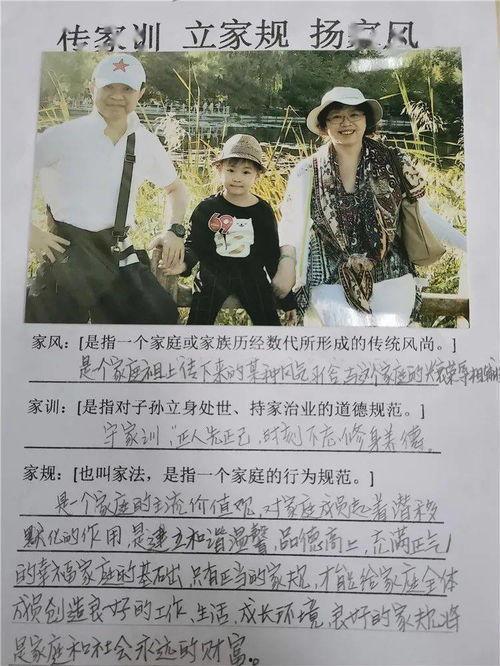 传家训 立家规 扬家风
69
家风：[是指一个家庭或家族历经数代所形成的传统风尚。]
是个家庭祖上传下来的某种风气符合与这个家庭的
家训：[是指对子孙立身处世、持家治业的道德规范。]
守家训，正人先正己，时刻不忘修身养德。
家规：[也叫家法，是指一个家庭的行为规范。]
是一个家庭的主流价值观，对家庭成员起着潜移
默化的作用，是建立和谐温馨，品德高上，充满正气
的幸福家庭的基础，只有正当的家规，才能给家庭全体
成员创造良好的工作、生活，成长环境，良好的家规将
是家庭和社会永远的财富。